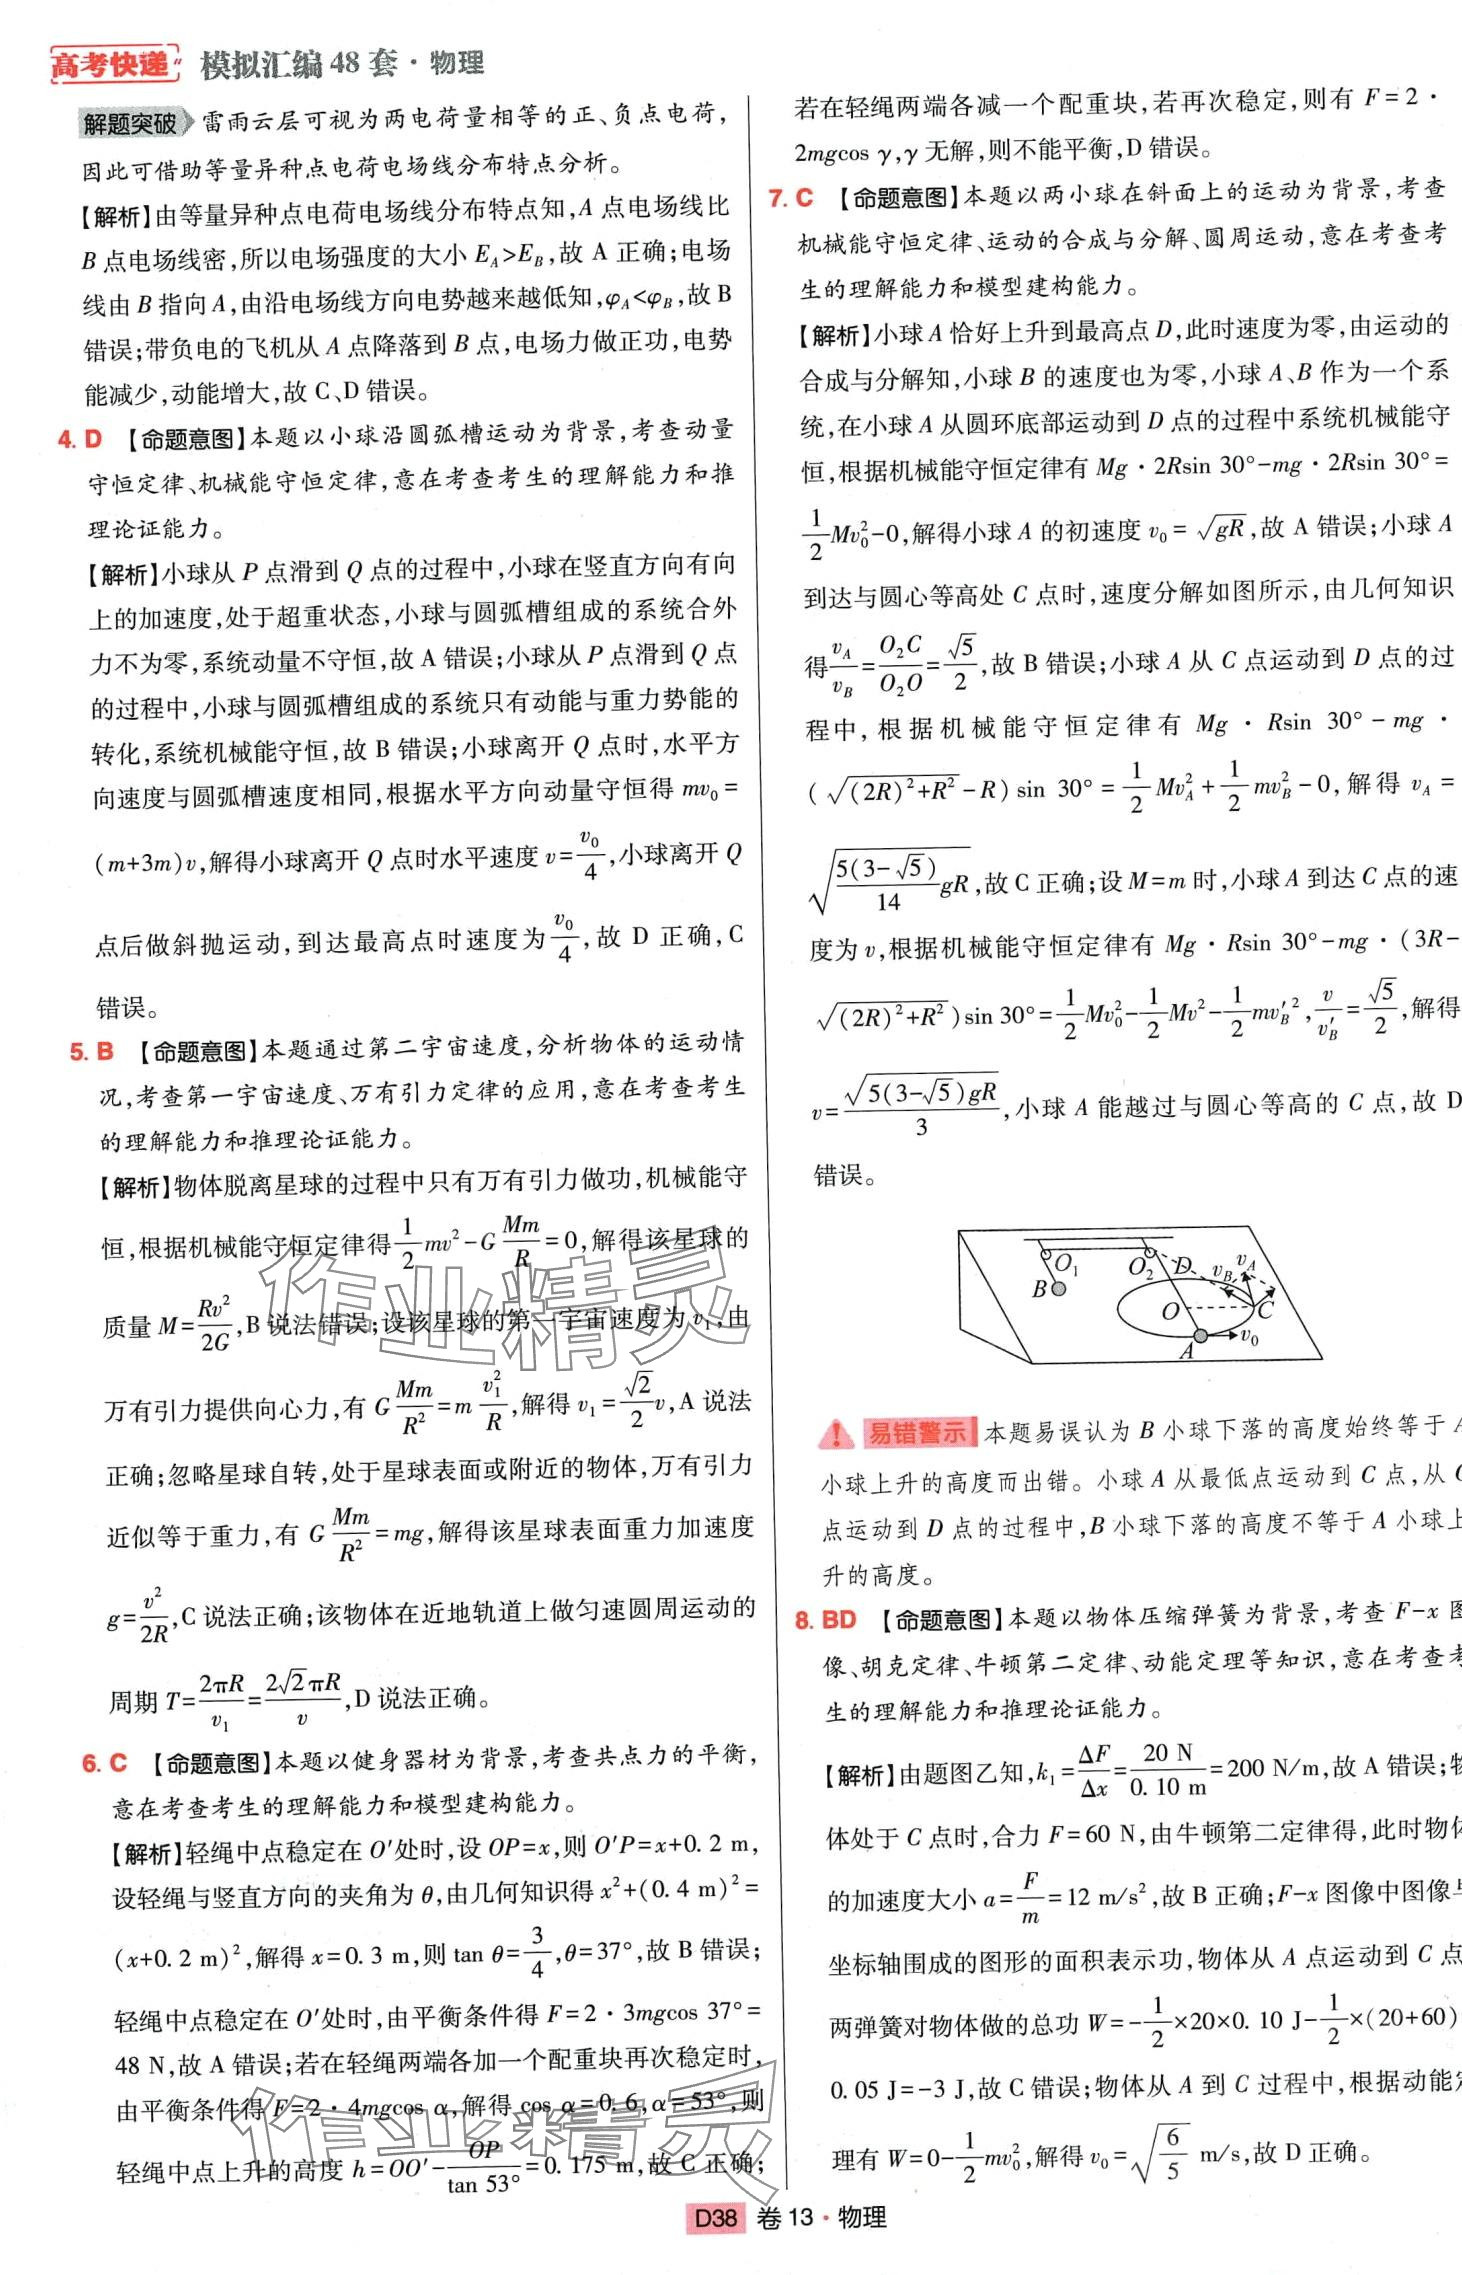 高考快递 模拟汇编48套·物理
解题突破 雷雨云层可视为两电荷量相等的正、负点电荷，
因此可借助等量异种点电荷电场线分布特点分析。
【解析】由等量异种点电荷电场线分布特点知，A点电场线比
B点电场线密，所以电场强度的大小 E_A>E_B，故 A 正确；电场
线由B指向A，由沿电场线方向电势越来越低知，φ_A<φ_B，故B
错误；带负电的飞机从A点降落到B点，电场力做正功，电势
能减少，动能增大，故 C、D 错误。
4. D 【命题意图】本题以小球沿圆弧槽运动为背景，考查动量
守恒定律、机械能守恒定律，意在考查考生的理解能力和推
理论证能力。
【解析】小球从P点滑到Q点的过程中，小球在竖直方向有向
上的加速度，处于超重状态，小球与圆弧槽组成的系统合外
力不为零，系统动量不守恒，故A错误；小球从P点滑到Q点
的过程中，小球与圆弧槽组成的系统只有动能与重力势能的
转化，系统机械能守恒，故 B 错误；小球离开 Q 点时，水平方
向速度与圆弧槽速度相同，根据水平方向动量守恒得 mv₀=
(m+3m)v，解得小球离开 Q 点时水平速度 v=v₀/4，小球离开 Q
点后做斜抛运动，到达最高点时速度为v₀/4，故 D 正确，C
错误。
5. B 【命题意图】本题通过第二宇宙速度，分析物体的运动情
况，考查第一宇宙速度、万有引力定律的应用，意在考查考生
的理解能力和推理论证能力。
【解析】物体脱离星球的过程中只有万有引力做功，机械能守
恒，根据机械能守恒定律得1/2 mv²-G Mm/R=0，解得该星球的
质量 M=Rv²/2G，B说法错误；设该星球的第一宇宙速度为v₁，由
万有引力提供向心力，有 G Mm/R²=m v₁²/R，解得 v₁=√2/2 v，A 说法
正确；忽略星球自转，处于星球表面或附近的物体，万有引力
近似等于重力，有 G Mm/R²=mg，解得该星球表面重力加速度
g=v²/2R，C 说法正确；该物体在近地轨道上做匀速圆周运动的
周期 T=2πR/v₁=2√2πR/v，D 说法正确。
6. C 【命题意图】本题以健身器材为背景，考查共点力的平衡，
意在考查考生的理解能力和模型建构能力。
【解析】轻绳中点稳定在 O′处时，设 OP=x，则 O′P=x+0.2 m，
设轻绳与竖直方向的夹角为 θ，由几何知识得 x²+(0.4 m)²=
(x+0.2 m)²，解得 x=0.3 m，则 tan θ=3/4，θ=37°，故 B 错误；
轻绳中点稳定在 O′处时，由平衡条件得 F=2·3mgcos 37°=
48 N，故 A 错误；若在轻绳两端各加一个配重块再次稳定时，
由平衡条件得 F=2·4mgcos α，解得 cos α=0.6，α=53°，则
轻绳中点上升的高度 h=OO′-OP/tan 53°=0.175 m，故 C 正确；
若在轻绳两端各减一个配重块，若再次稳定，则有 F=2·
2mgcos γ，γ 无解，则不能平衡，D 错误。
7. C 【命题意图】本题以两小球在斜面上的运动为背景，考查
机械能守恒定律、运动的合成与分解、圆周运动，意在考查考
生的理解能力和模型建构能力。
【解析】小球A恰好上升到最高点D，此时速度为零，由运动的
合成与分解知，小球 B 的速度也为零，小球 A、B 作为一个系
统，在小球 A 从圆环底部运动到 D 点的过程中系统机械能守
恒，根据机械能守恒定律有 Mg·2Rsin 30°-mg·2Rsin 30°=
1/2 Mv₀²-0，解得小球 A 的初速度 v₀=√gR，故 A 错误；小球 A
到达与圆心等高处 C 点时，速度分解如图所示，由几何知识
得v_A/v_B=O₂C/O₂O=√5/2，故 B 错误；小球 A 从 C 点运动到 D 点的过
程中，根据机械能守恒定律有 Mg·Rsin 30°-mg·
(√((2R)²+R²)-R)sin 30°=1/2 Mv_A²+1/2 mv_B²-0，解得 v_A=
√(5(3-√5)/14 gR)，故 C 正确；设 M=m 时，小球 A 到达 C 点的速
度为 v，根据机械能守恒定律有 Mg·Rsin 30°-mg·(3R-
√((2R)²+R²))sin 30°=1/2 Mv₀²-1/2 Mv²-1/2 mv′_B²，v/v′_B=√5/2，解得
v=√(5(3-√5)gR)/3，小球 A 能越过与圆心等高的 C 点，故 D
错误。
O₁ O₂ D v_B v_A
B O C
A v₀
易错警示 本题易误认为 B 小球下落的高度始终等于 A
小球上升的高度而出错。小球 A 从最低点运动到 C 点，从 C
点运动到 D 点的过程中，B 小球下落的高度不等于 A 小球上
升的高度。
8. BD 【命题意图】本题以物体压缩弹簧为背景，考查 F-x 图
像、胡克定律、牛顿第二定律、动能定理等知识，意在考查考
生的理解能力和推理论证能力。
【解析】由题图乙知，k₁=ΔF/Δx=20 N/0.10 m=200 N/m，故 A 错误；物
体处于 C 点时，合力 F=60 N，由牛顿第二定律得，此时物体
的加速度大小 a=F/m=12 m/s²，故 B 正确；F-x 图像中图像与
坐标轴围成的图形的面积表示功，物体从 A 点运动到 C 点
两弹簧对物体做的总功 W=-1/2×20×0.10 J-1/2×(20+60)
0.05 J=-3 J，故 C 错误；物体从 A 到 C 过程中，根据动能定
理有 W=0-1/2 mv₀²，解得 v₀=√(6/5) m/s，故 D 正确。
作业精灵
作业精灵
D38 卷13·物理